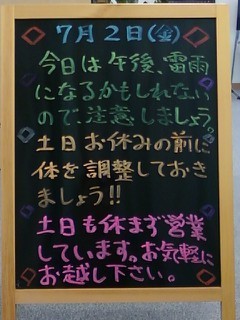 7月2日(金)
今日は午後、雷雨
になるかもしれない
ので、注意しましょう。
土日お休みの前に
体を調整しておき
ましょう!!
土日も休まず営業
しています。お気軽に
お越し下さい。